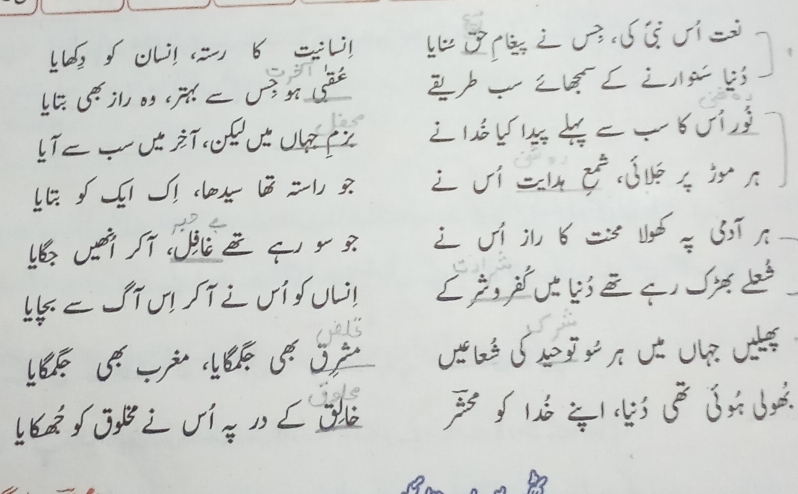 نعت اُس نبیؐ کی، جِس نے پیغامِ حق سُنایا
اِنسانیت کا رستہ، اِنسان کو دِکھایا
دُنیا سَنوارنے کے سمجھائے سب طریقے
آخرت
عُقبٰی ہو جِس سے بہتر، وہ راز بھی بتایا
روشنی
نُور اُس کا سب سے پہلے پیدا کیا خُدا نے
محفل
بزمِ جہاں میں لیکن، آخِر میں سب سے آیا
روشنی
ہر موڑ پر جَلائی، شمعِ ہدایت اُس نے
جو راستہ تھا سیدھا، اِک ایک کو بتایا
ہر آدمی پہ کھولا محنت کا راز اُس نے
بے خبر
جو سو رہے تھے غافِل، آکر اُنھیں جگایا
شرارت
شُعلے بھڑک رہے تھے دُنیا میں کُفر و شر کے
اِنساں کو اُس نے آکر اِس آگ سے بچایا
پھیلیں جہاں میں ہر سُو توحید کی شُعاعیں
مشرِق بھی جگمگایا، مغرب بھی جگمگایا
بُھولی ہُوئی تھی دُنیا، اپنے خُدا کو محشرؔ
مخلوق
خالِق کے در پہ اُس نے مخلوق کو جُھکایا